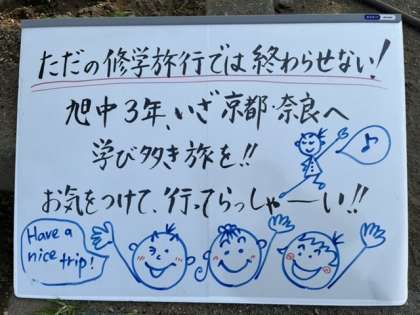 ただの修学旅行では終わらせない!
旭中3年、いざ京都・奈良へ
学び多き旅を!!
お気をつけて、行ってらっしゃーい!!
♪
Have a
nice
trip!